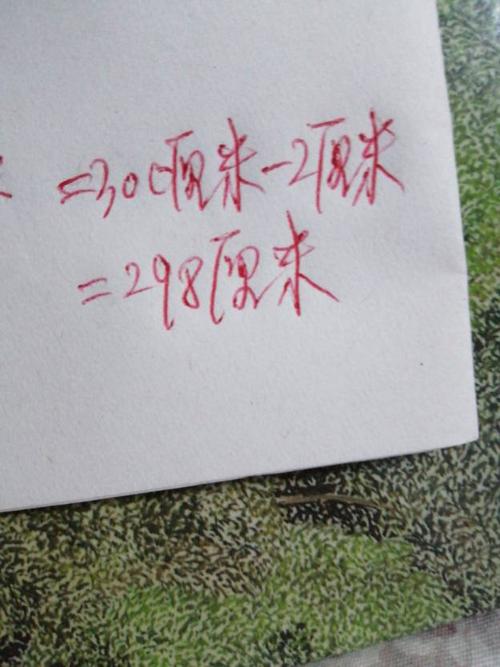 =300厘米-2厘米
=298厘米